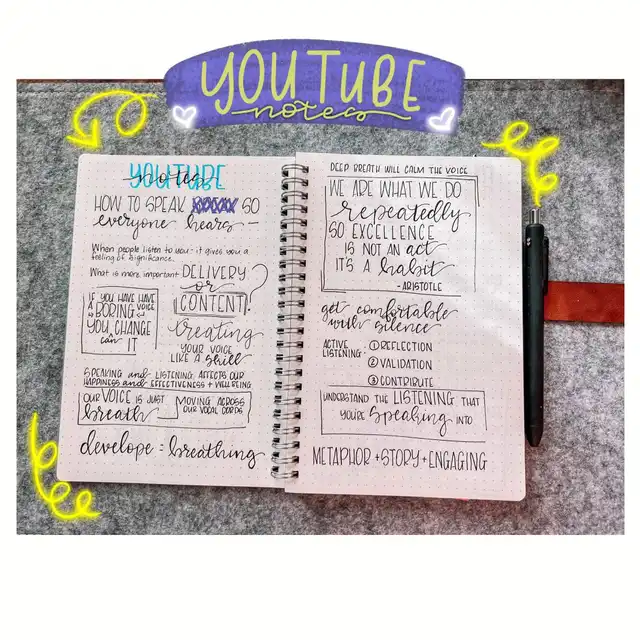 YOUTUBE
notes
YOUTUBE
notes
HOW TO SPEAK SO
everyone hears -
When people listen to you - it gives you a
feeling of significance.
What is more important DELIVERY
or
CONTENT?
IF YOU HAVE HAVE
A BORING VOICE
YOU CHANGE
can IT
Treating
YOUR VOICE
LIKE A skill
SPEAKING and LISTENING AFFECTS OUR
HAPPINESS and EFFECTIVENESS + WELL BEING
OUR VOICE IS JUST
breath
MOVING ACROSS
OUR VOCAL CORDS
develope = breathing
DEEP BREATH WILL CALM THE VOICE
WE ARE WHAT WE DO
repeatedly
SO EXCELLENCE
IS NOT AN act
IT'S A habit
- ARISTOTLE
get comfortable
with silence
ACTIVE
LISTENING:
① REFLECTION
② VALIDATION
③ CONTRIBUTE
UNDERSTAND THE LISTENING THAT
YOU'RE Speaking INTO
METAPHOR + STORY + ENGAGING